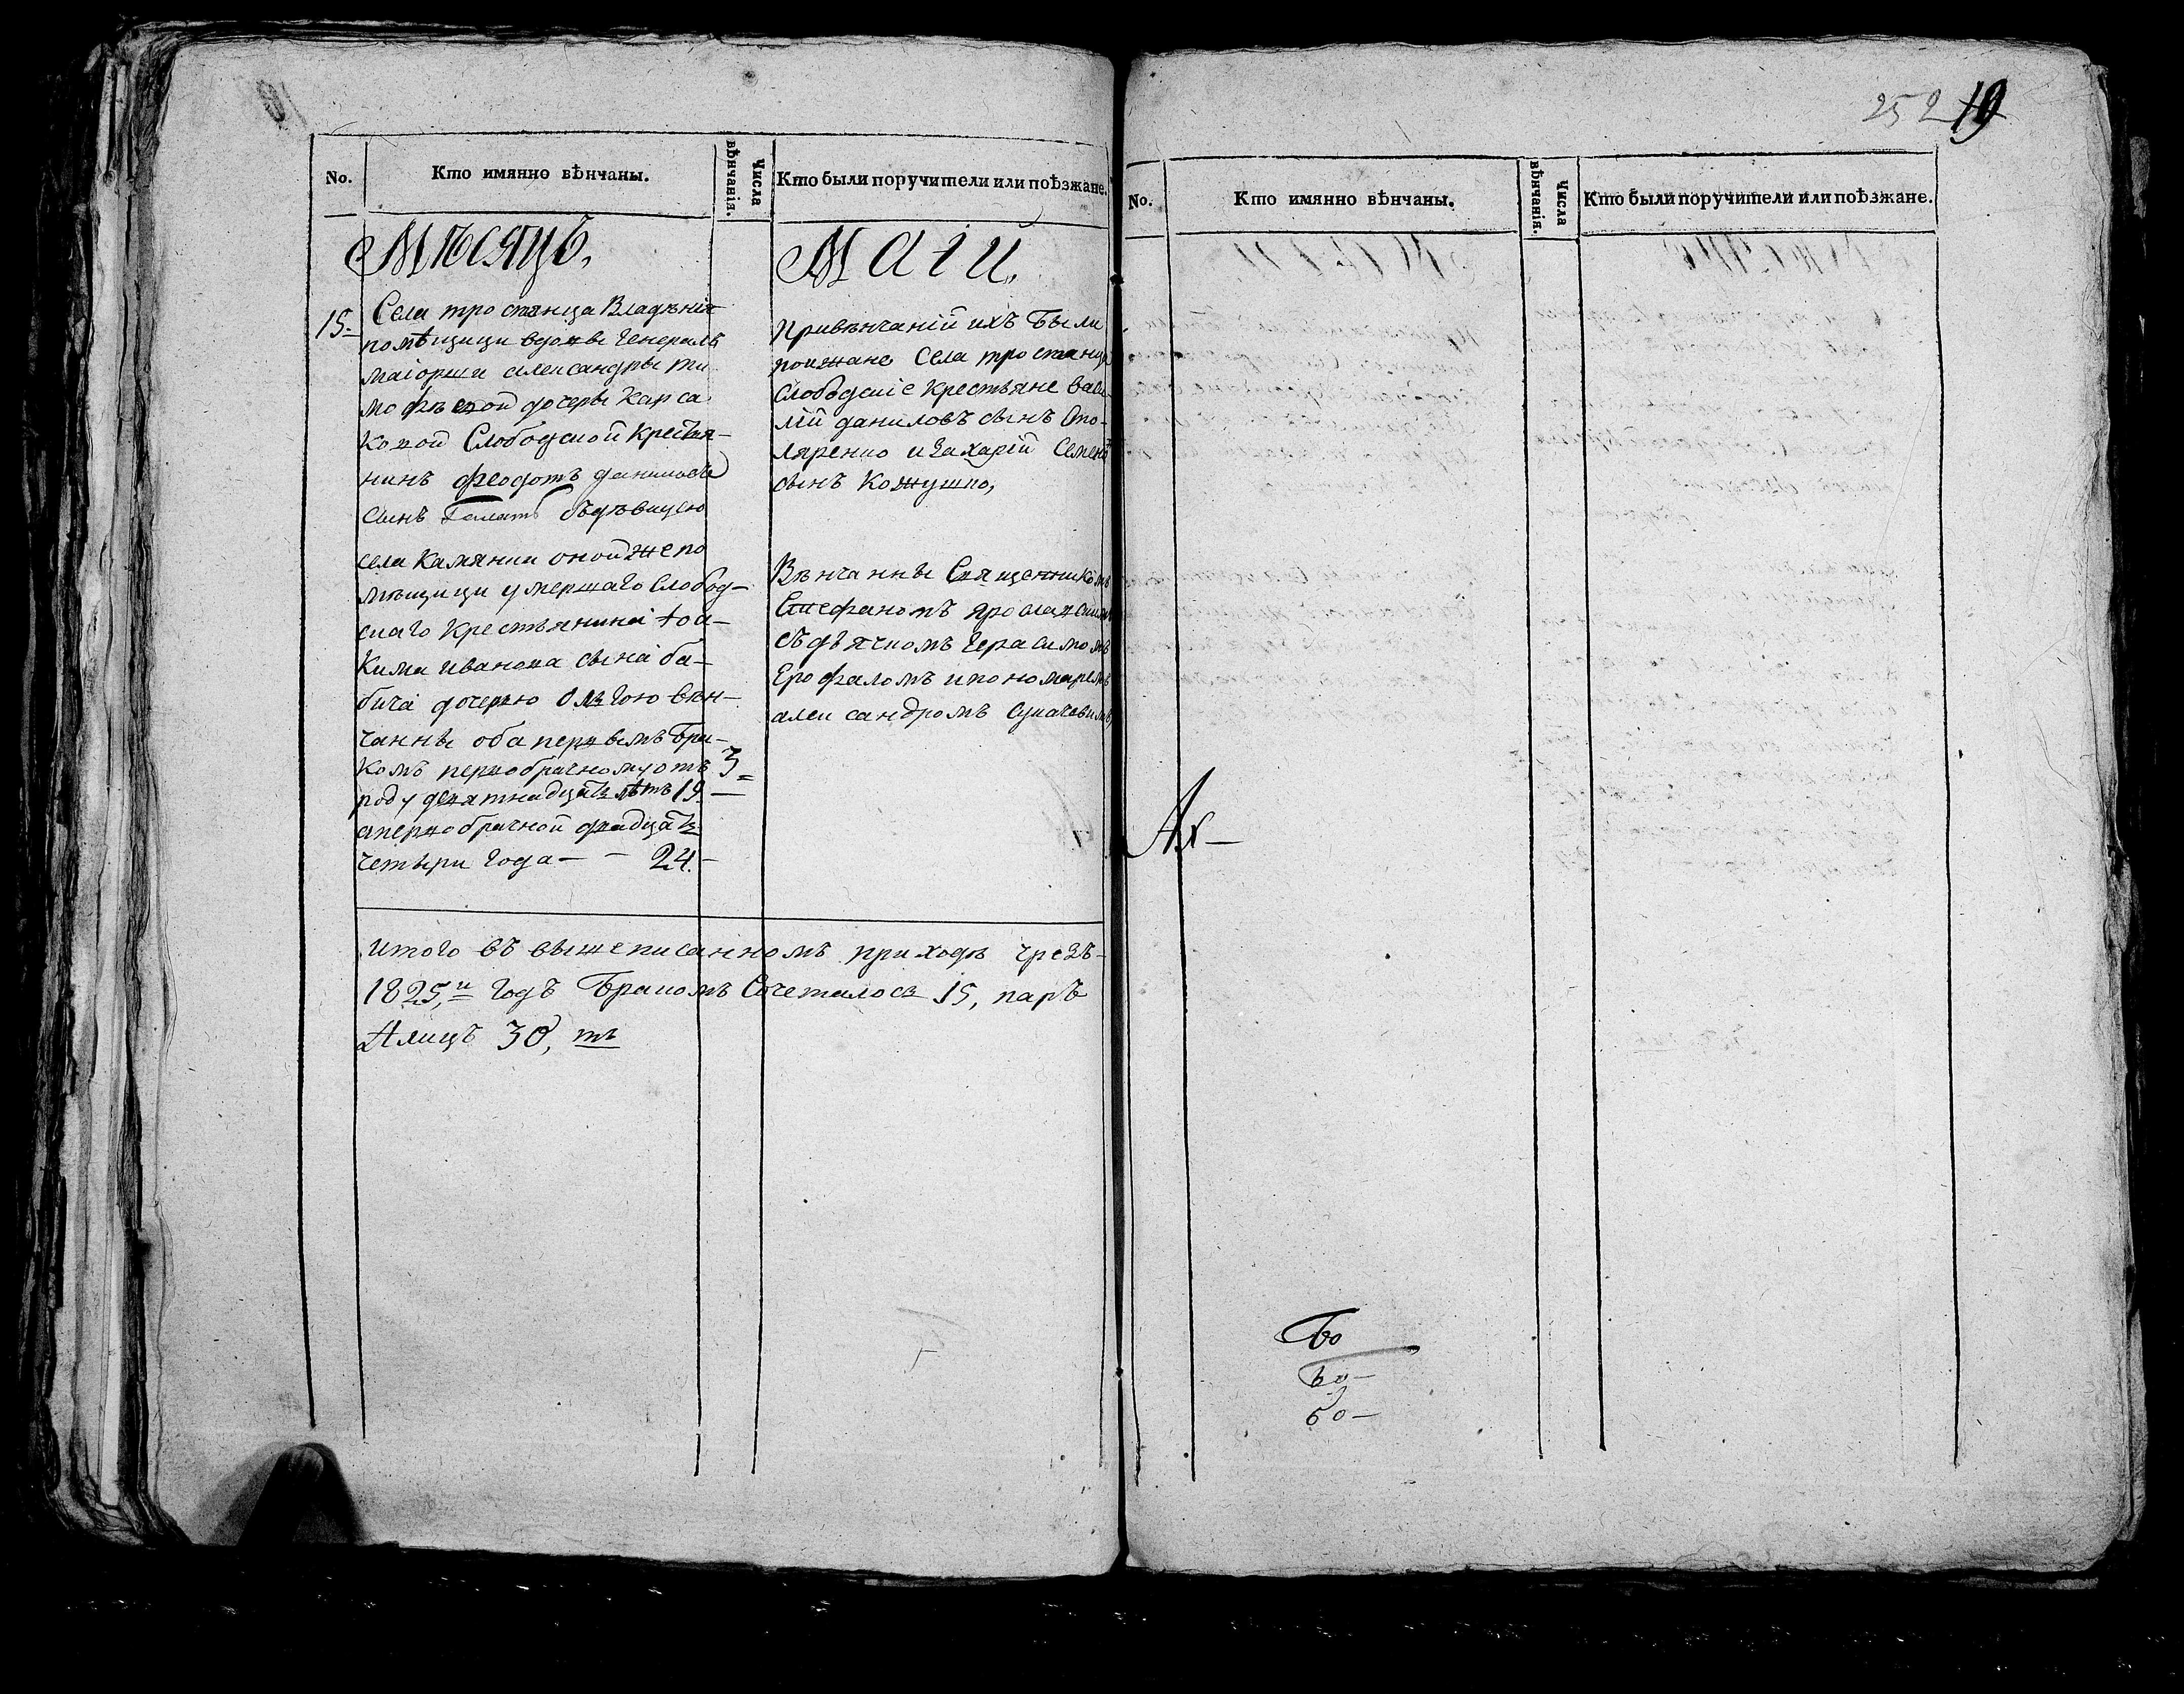 252 19
No.
Кто имянно вѣнчаны.
Числа вѣнчанія.
Кто были поручители или поѣзжане.
Мѣсяцъ,
Маій,
15
Села тростянца Владѣнія
помѣщици вдовы Генералъ
маіорши александры ти
мофѣевой дочеры Карса
ковой Слободской Крестья-
нинъ феодотъ даниловъ
сынъ съдѣвицею
села Камянки онойже по
мѣщици умершаго слобод-
скаго Крестьянина Іоа-
кима иванова сына ба-
бича дочерю олгою вѣн-
чанны оба первымъ бра-
комъ первобрачному отъ
роду девятнадцать лѣтъ 19 —
апервобрачной двадцать
четыри года — — 24.—
3
Привѣнчаніи ихъ были
поижане Села тростянца
Слободскіе Крестьяне васи-
лій даниловъ сынъ Сто-
ляренко изахарій Семеновъ
сынъ Кожушко,
Вѣнчанны Священикомъ
Стефаномъ
съдьячкомъ Герасимомъ
Ерофаломъ ипономаремъ
александромъ
итого въ вышеписанномъ приходѣ чрезъ
1825,й годъ бракомъ Сочеталось 15, паръ
Алицъ 30, тъ
No.
Кто имянно вѣнчаны.
Числа вѣнчанія.
Кто были поручители или поѣзжане.
60 —